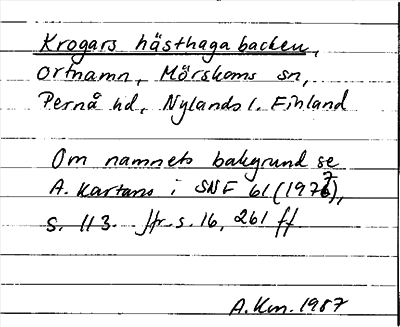 Krogars hästhaga backen,
ortnamn, Mörskoms sn,
Pernå hd, Nylands l. Finland
Om namnets bakgrund se
A. Kartano i SNF 61 (1977),
s. 113. Jfr s. 16, 261 ff.
A.Km. 1987